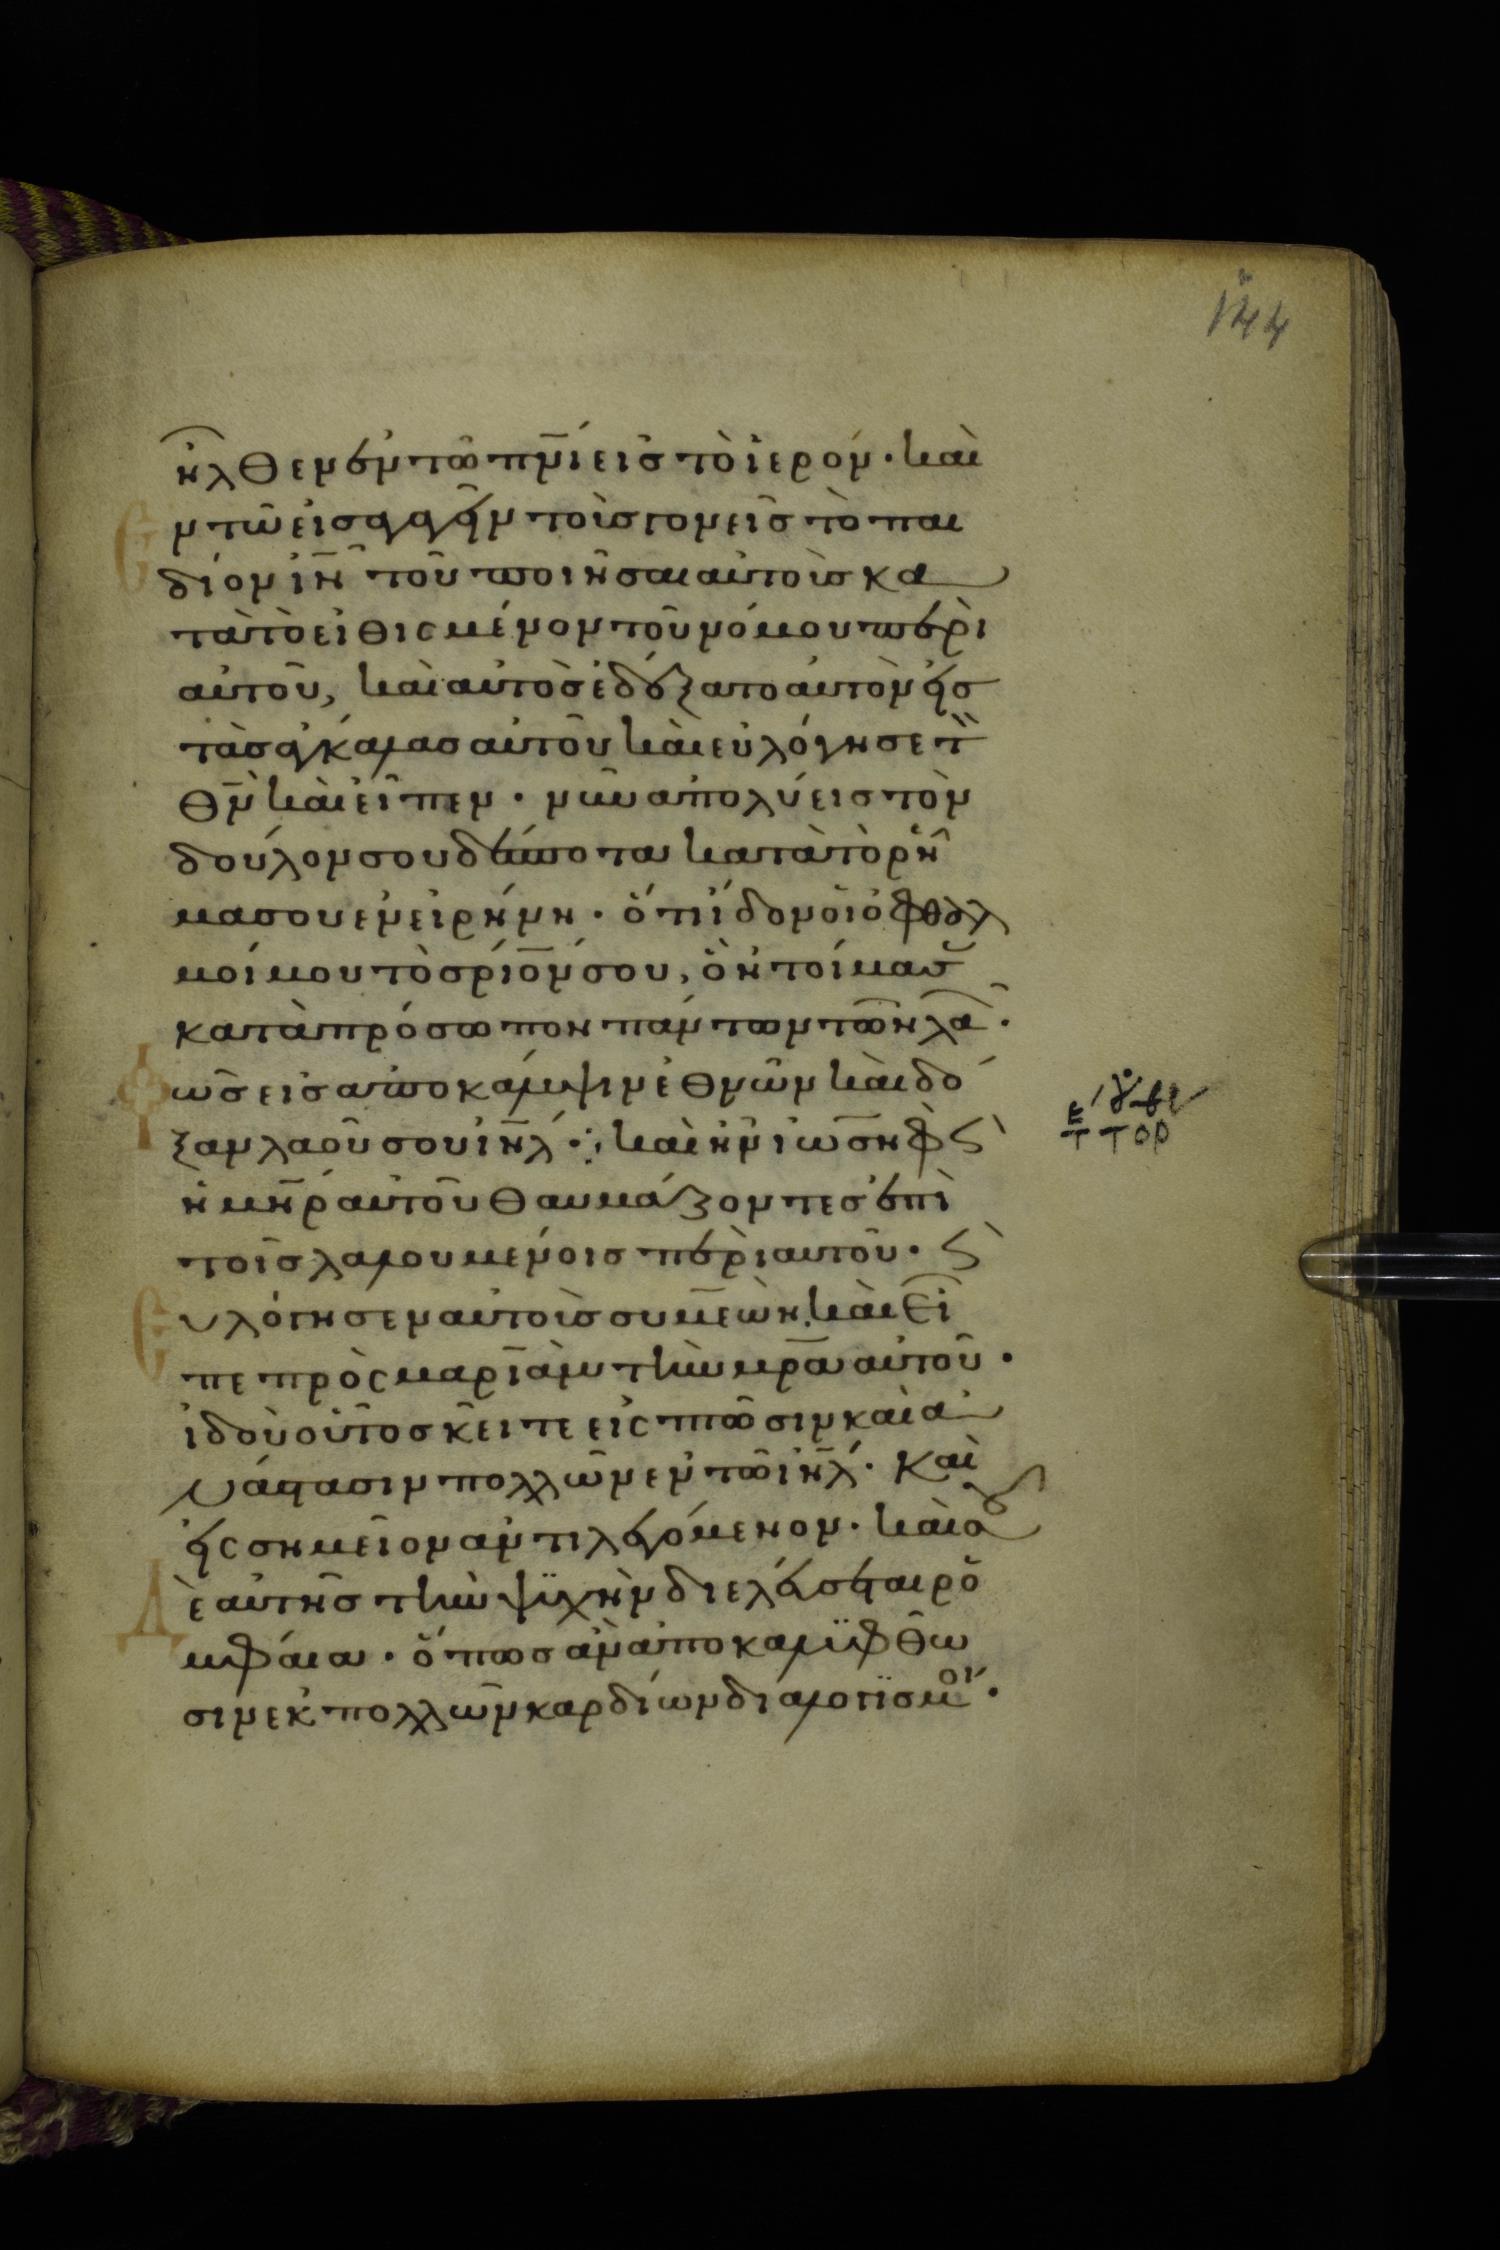 144
ἦλθεν ἐν τῶ πν̅ι εἰς τὸ ἱερόν· καὶ
Εν τῶ εἰσαγαγεῖν τοὺς γονεῖς τὸ παι
δίον ι̅ν̅ τοῦ ποιῆσαι αὐτοὺς κα
τὰ τὸ εἰθισμένον τοῦ νόμου περὶ
αὐτοῦ, καὶ αὐτὸς ἐδέξατο αὐτὸν εἰς
τὰς ἀγκάλας αὐτοῦ καὶ εὐλόγησε τ
θ̅ν̅ καὶ εἶπεν· νῦν ἀπολύεις τὸν
δούλον σου δέσποτα κατὰ τὸ ρῆ
μα σου ἐν εἰρήνη· ὅτι ἴδον οἱ ὀφθαλ
μοί μου τὸ σρ̅ιόν σου, ὃ ἡτοίμασ
κατὰ πρόσωπον πάντων τῶν λα·
Φῶς εἰς ἀποκάλυψιν ἐθνῶν καὶ δό
ξαν λαοῦ σου ι̅η̅λ· καὶ ἦν ἰωσὴφ ϛ
ἡ μ̅η̅ρ αὐτοῦ θαυμάζοντες ἐπὶ
τοῖς λαλουμένοις περὶ αὐτοῦ· ϛ
Ευλόγησεν αὐτοὺς συμεὼν, καὶ εἶ
πε πρὸς μαριὰμ τὴν μ̅ρ̅α αὐτοῦ·
ἰδοὺ οὗτος κεῖται εἰς πτῶσιν καὶ ἀ
νάστασιν πολλῶν ἐν τῶ ι̅η̅λ· καὶ
εἰς σημεῖον ἀντιλεγόμενον· καὶ σοῦ
Δὲ αὐτῆς τὴν ψυχὴν διελεύσεται ρο
μφαία· ὅπως ἂν ἀποκαλυφθῶ
σιν ἐκ πολλῶν καρδίων διαλογισμοί·